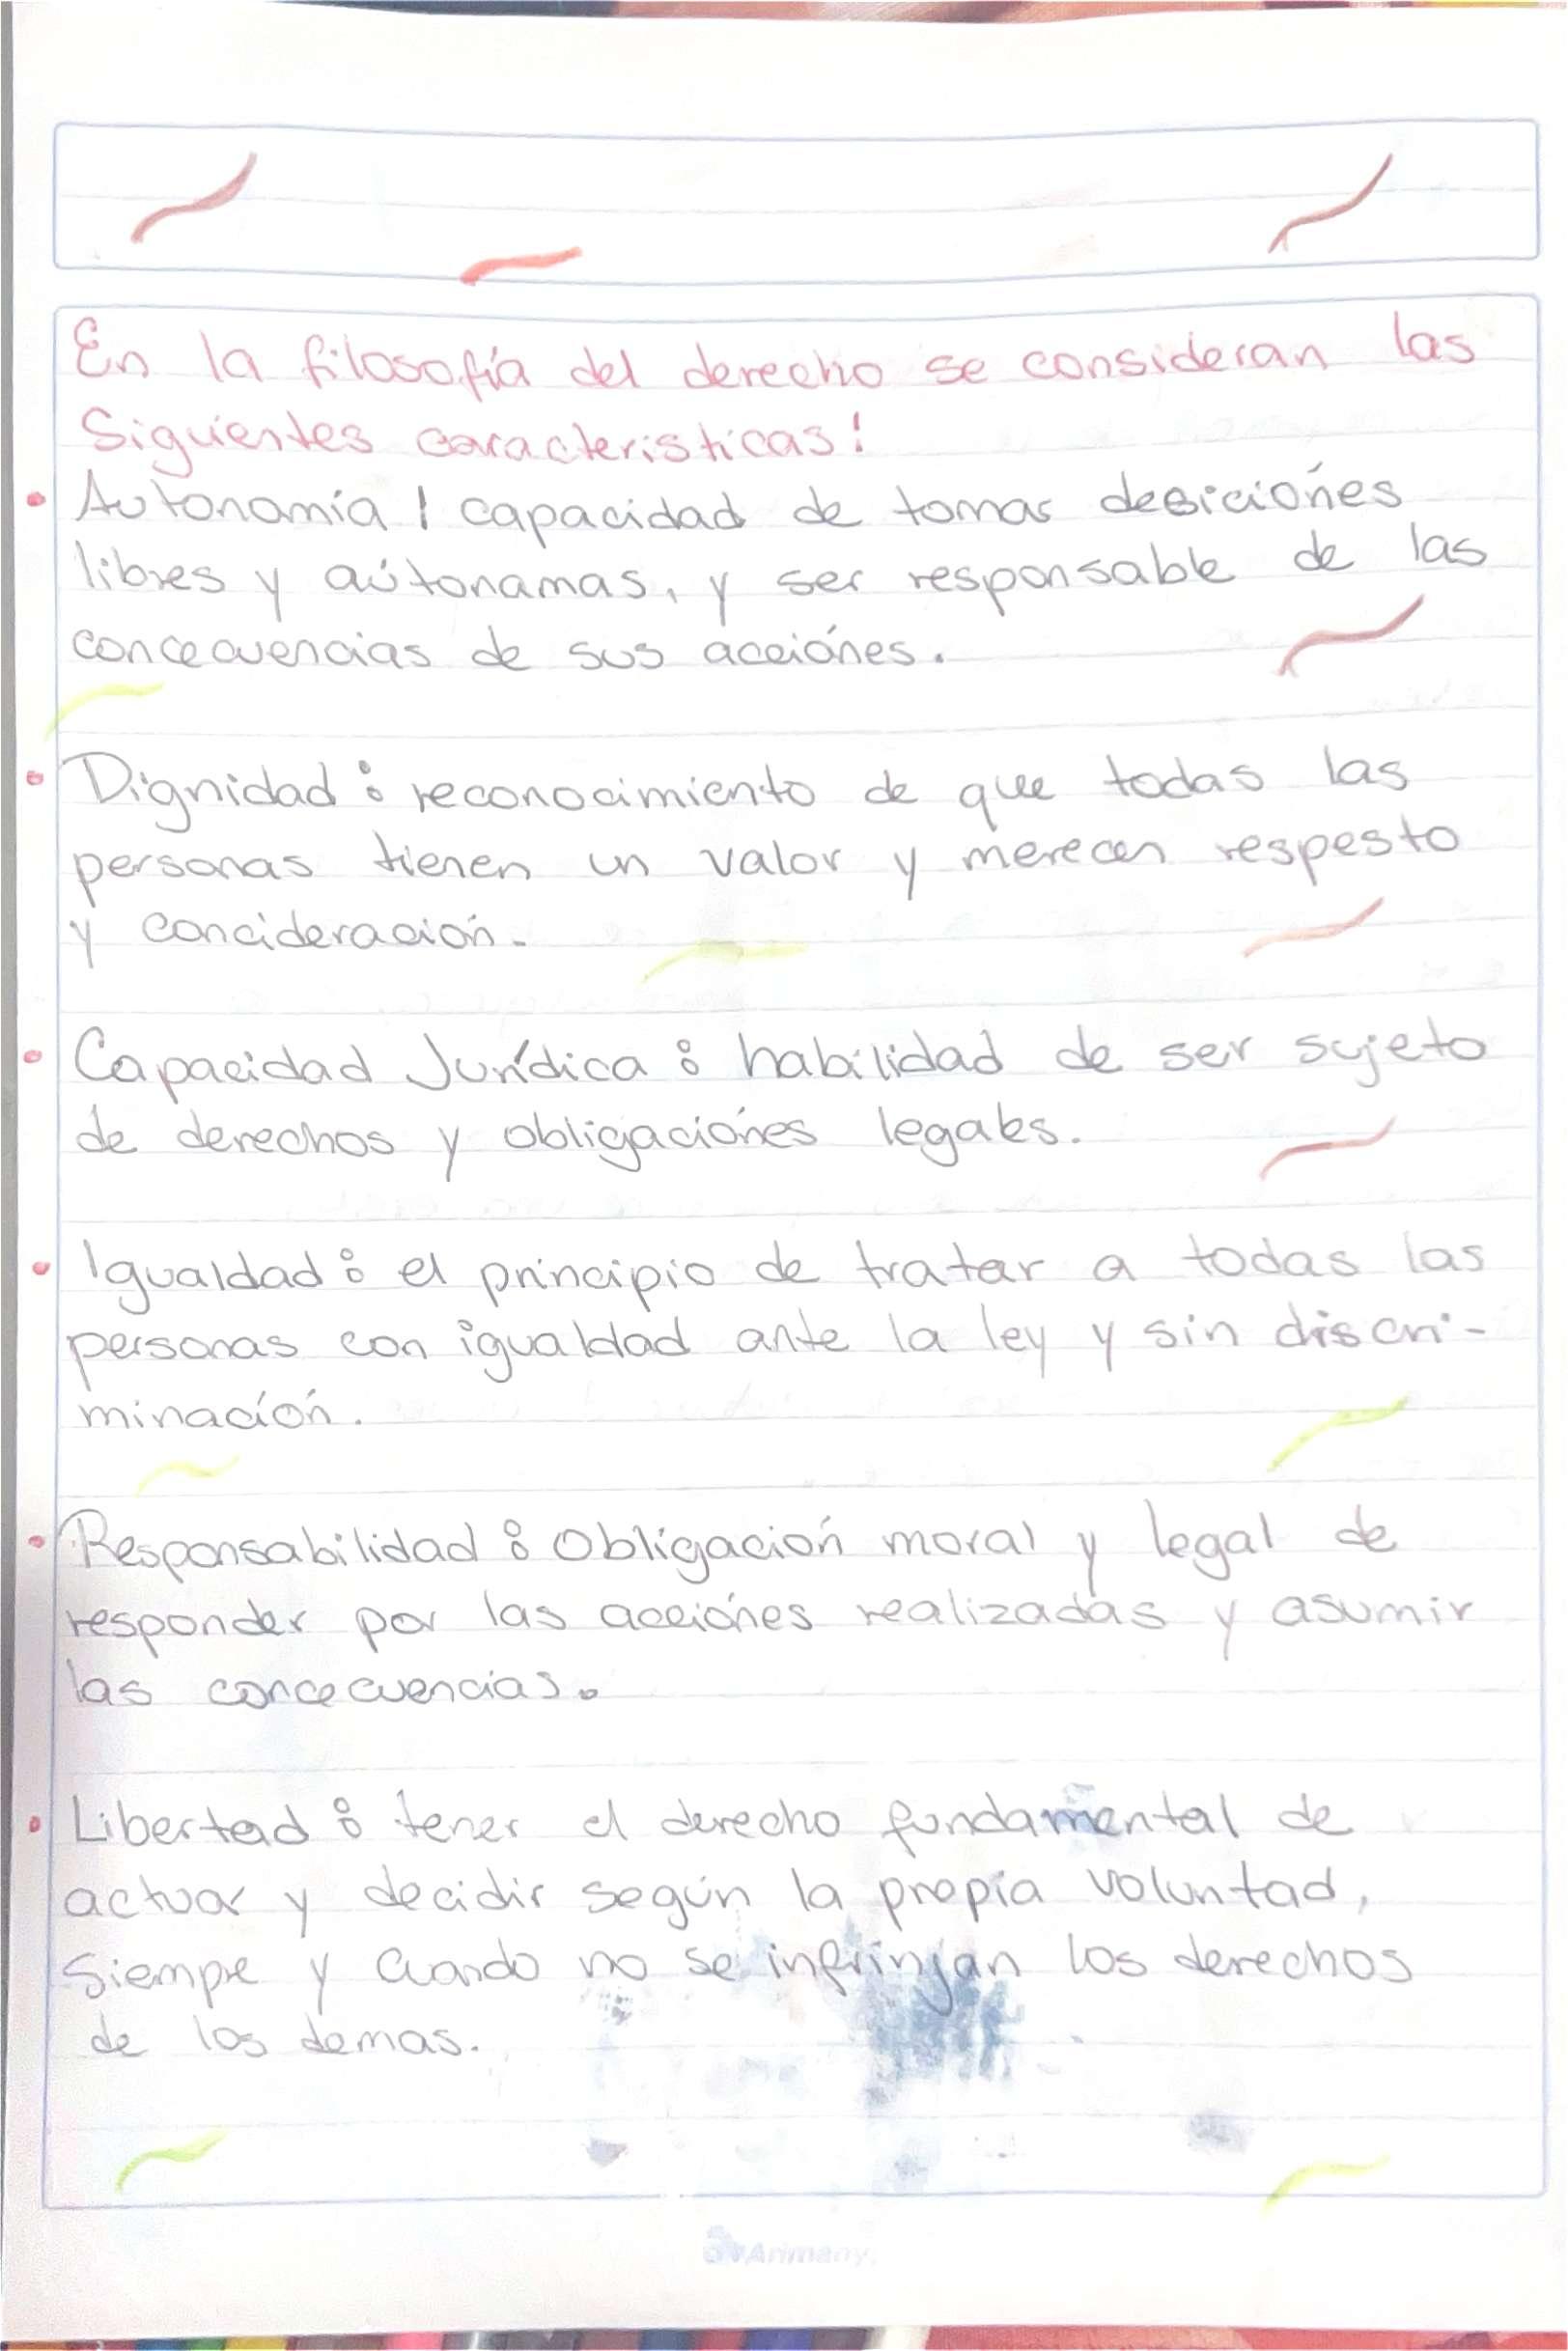 En la filosofía del derecho se consideran las
Siguientes caracteristicas!
• Autonomía | capacidad de tomar desiciónes
libres y aútonamas, y ser responsable de las
concecuencias de sus acciónes.
• Dignidad: reconocimiento de que todas las
personas tienen un valor y merecen respesto
y concideración.
• Capacidad Jurídica: habilidad de ser sujeto
de derechos y obligaciónes legales.
• Igualdad: el principio de tratar a todas las
personas con igualdad ante la ley y sin discri-
minación.
• Responsabilidad: Obligación moral y legal de
responder por las acciónes realizadas y asumir
las concecuencias.
• Libertad: tener el derecho fundamental de
actuar y decidir según la propia voluntad,
Siempre y cuando no se infrinjan los derechos
de los demas.
Arimany